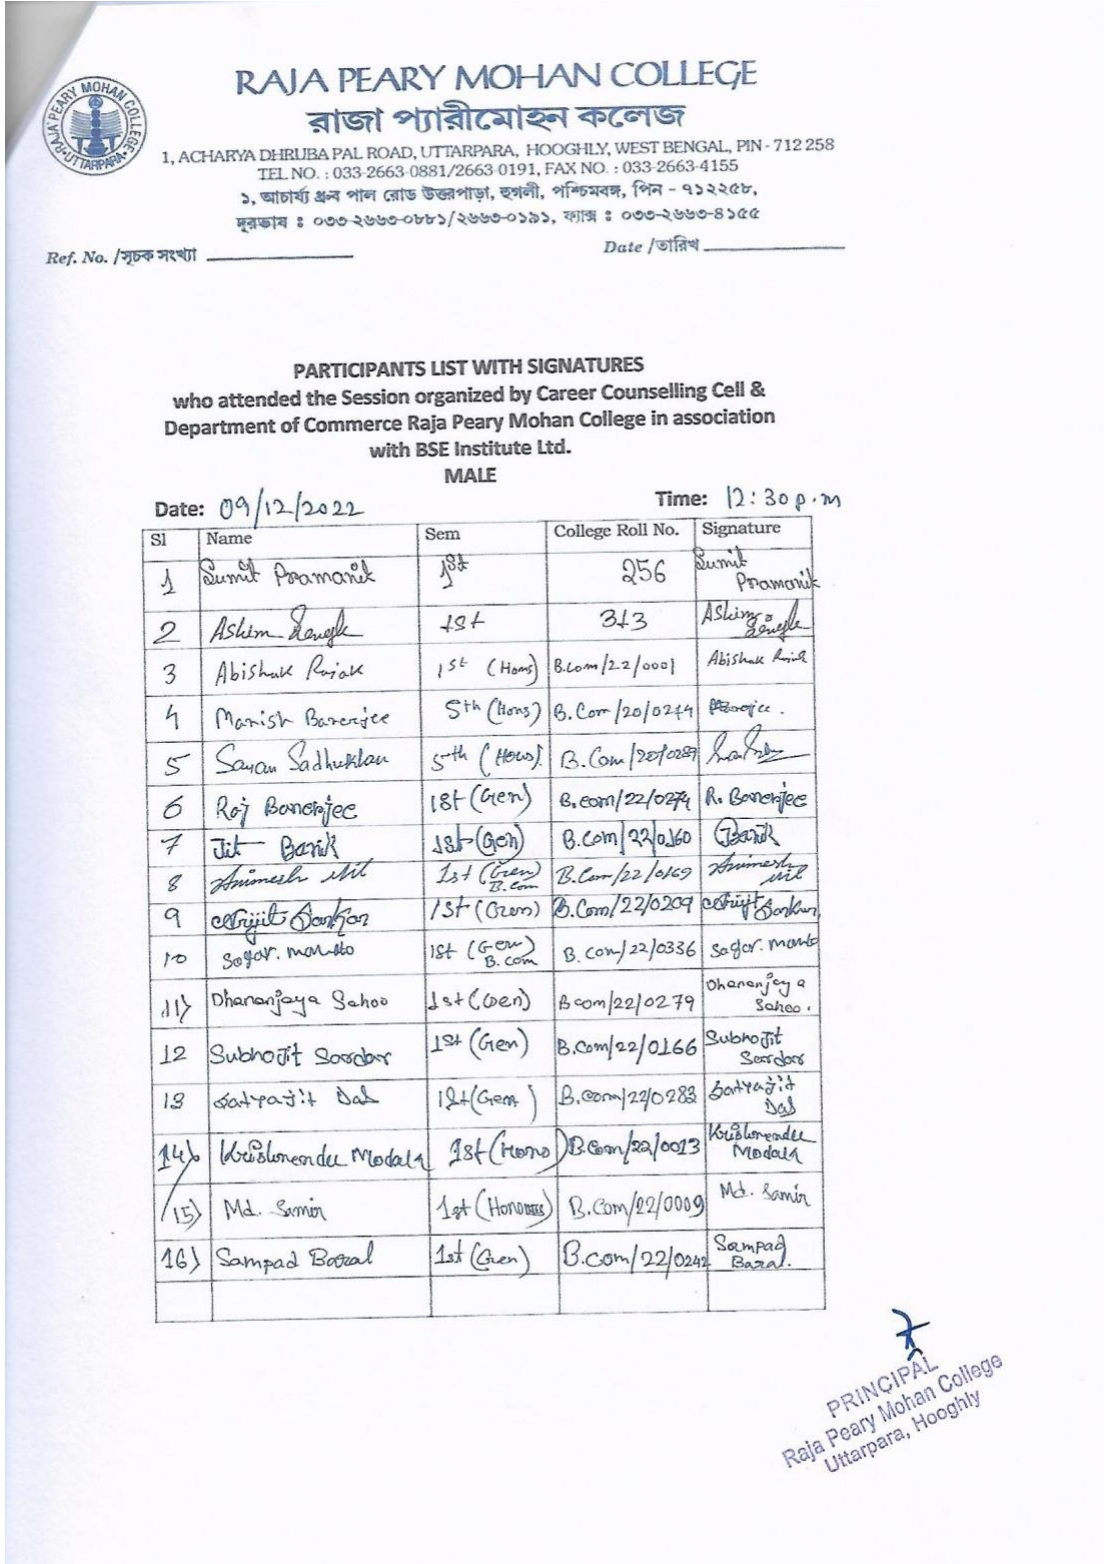 RAJA PEARY MOHAN COLLEGE
RAJA PEARY MOHAN COLLEGE
UTTARPARA
রাজা প্যারীমোহন কলেজ
1, ACHARYA DHRUBA PAL ROAD, UTTARPARA, HOOGHLY, WEST BENGAL, PIN - 712 258
TEL NO. : 033-2663-0881/2663-0191, FAX NO. : 033-2663-4155
১, আচার্য্য ধ্রুব পাল রোড উত্তরপাড়া, হুগলী, পশ্চিমবঙ্গ, পিন - ৭১২২৫৮,
দূরভাষ : ০৩৩-২৬৬৩-০৮৮১/২৬৬৩-০১৯১, ফ্যাক্স : ০৩৩-২৬৬৩-৪১৫৫
Ref. No. /সূচক সংখ্যা Date /তারিখ
PARTICIPANTS LIST WITH SIGNATURES
who attended the Session organized by Career Counselling Cell &
Department of Commerce Raja Peary Mohan College in association
with BSE Institute Ltd.
MALE
Date: 09/12/2022 Time: 12:30 p.m
Sl Name Sem College Roll No. Signature
1 Sumit Pramanik 1st 256 Sumit Pramanik
2 Ashim 1st 313 Ashim
3 Abishak Rajak 1st (Hons) B.Com/22/0001 Abishak Rajak
4 Manish Banerjee 5th (Hons) B.Com/20/0244 Banerjee.
5 Sayan Sadhukhan 5th (Hons). B.Com/20/0289
6 Raj Banerjee 1st (Gen) B.com/22/0274 R. Banerjee
7 Jit Barik 1st (Gen) B.Com/22/0160 JBarik
8 Animesh Mit 1st (Gen) B.Com B.Com/22/0169 Animesh Mit
9 Arijit Sarkar 1st (Gen) B.Com/22/0209 Arijit Sarkar
10 Sagar. mahato 1st (Gen) B.com B.com/22/0336 Sagar. mahato
11) Dhananjaya Sahoo 1st (Gen) Bcom/22/0279 Dhananjaya Sahoo.
12 Subhojit Sardar 1st (Gen) B.Com/22/0166 Subhojit Sardar
13 Satyajit Das 1st (Gen) B.com/22/0283 Satyajit Das
14) Krishnendu Modak 1st (Hons) B.Com/22/0013 Krishnendu Modak
15) Md. Samir 1st (Honours) B.Com/22/0009 Md. Samir
16) Sampad Baral 1st (Gen) B.com/22/0242 Sampad Baral.
PRINCIPAL
Raja Peary Mohan College
Uttarpara, Hooghly